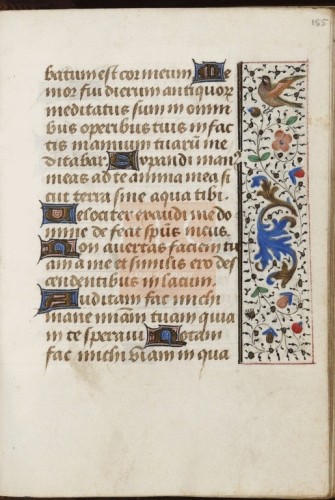 155
batum est cor meum Me
mor fui dierum antiquor
meditatus sum in omni
bus operibus tuis in fac
tis manuum tuarū me
ditabar Expandi man
meas ad te anima mea si
cut terra sine aqua tibi
Velociter exaudi me do
mine defecit spūs meus
Non avertas faciem tu
am a me et similis ero des
cendentibus in lacum
Auditam fac michi
mane miām tuam quia
in te speravi Notam
fac michi viam in qua